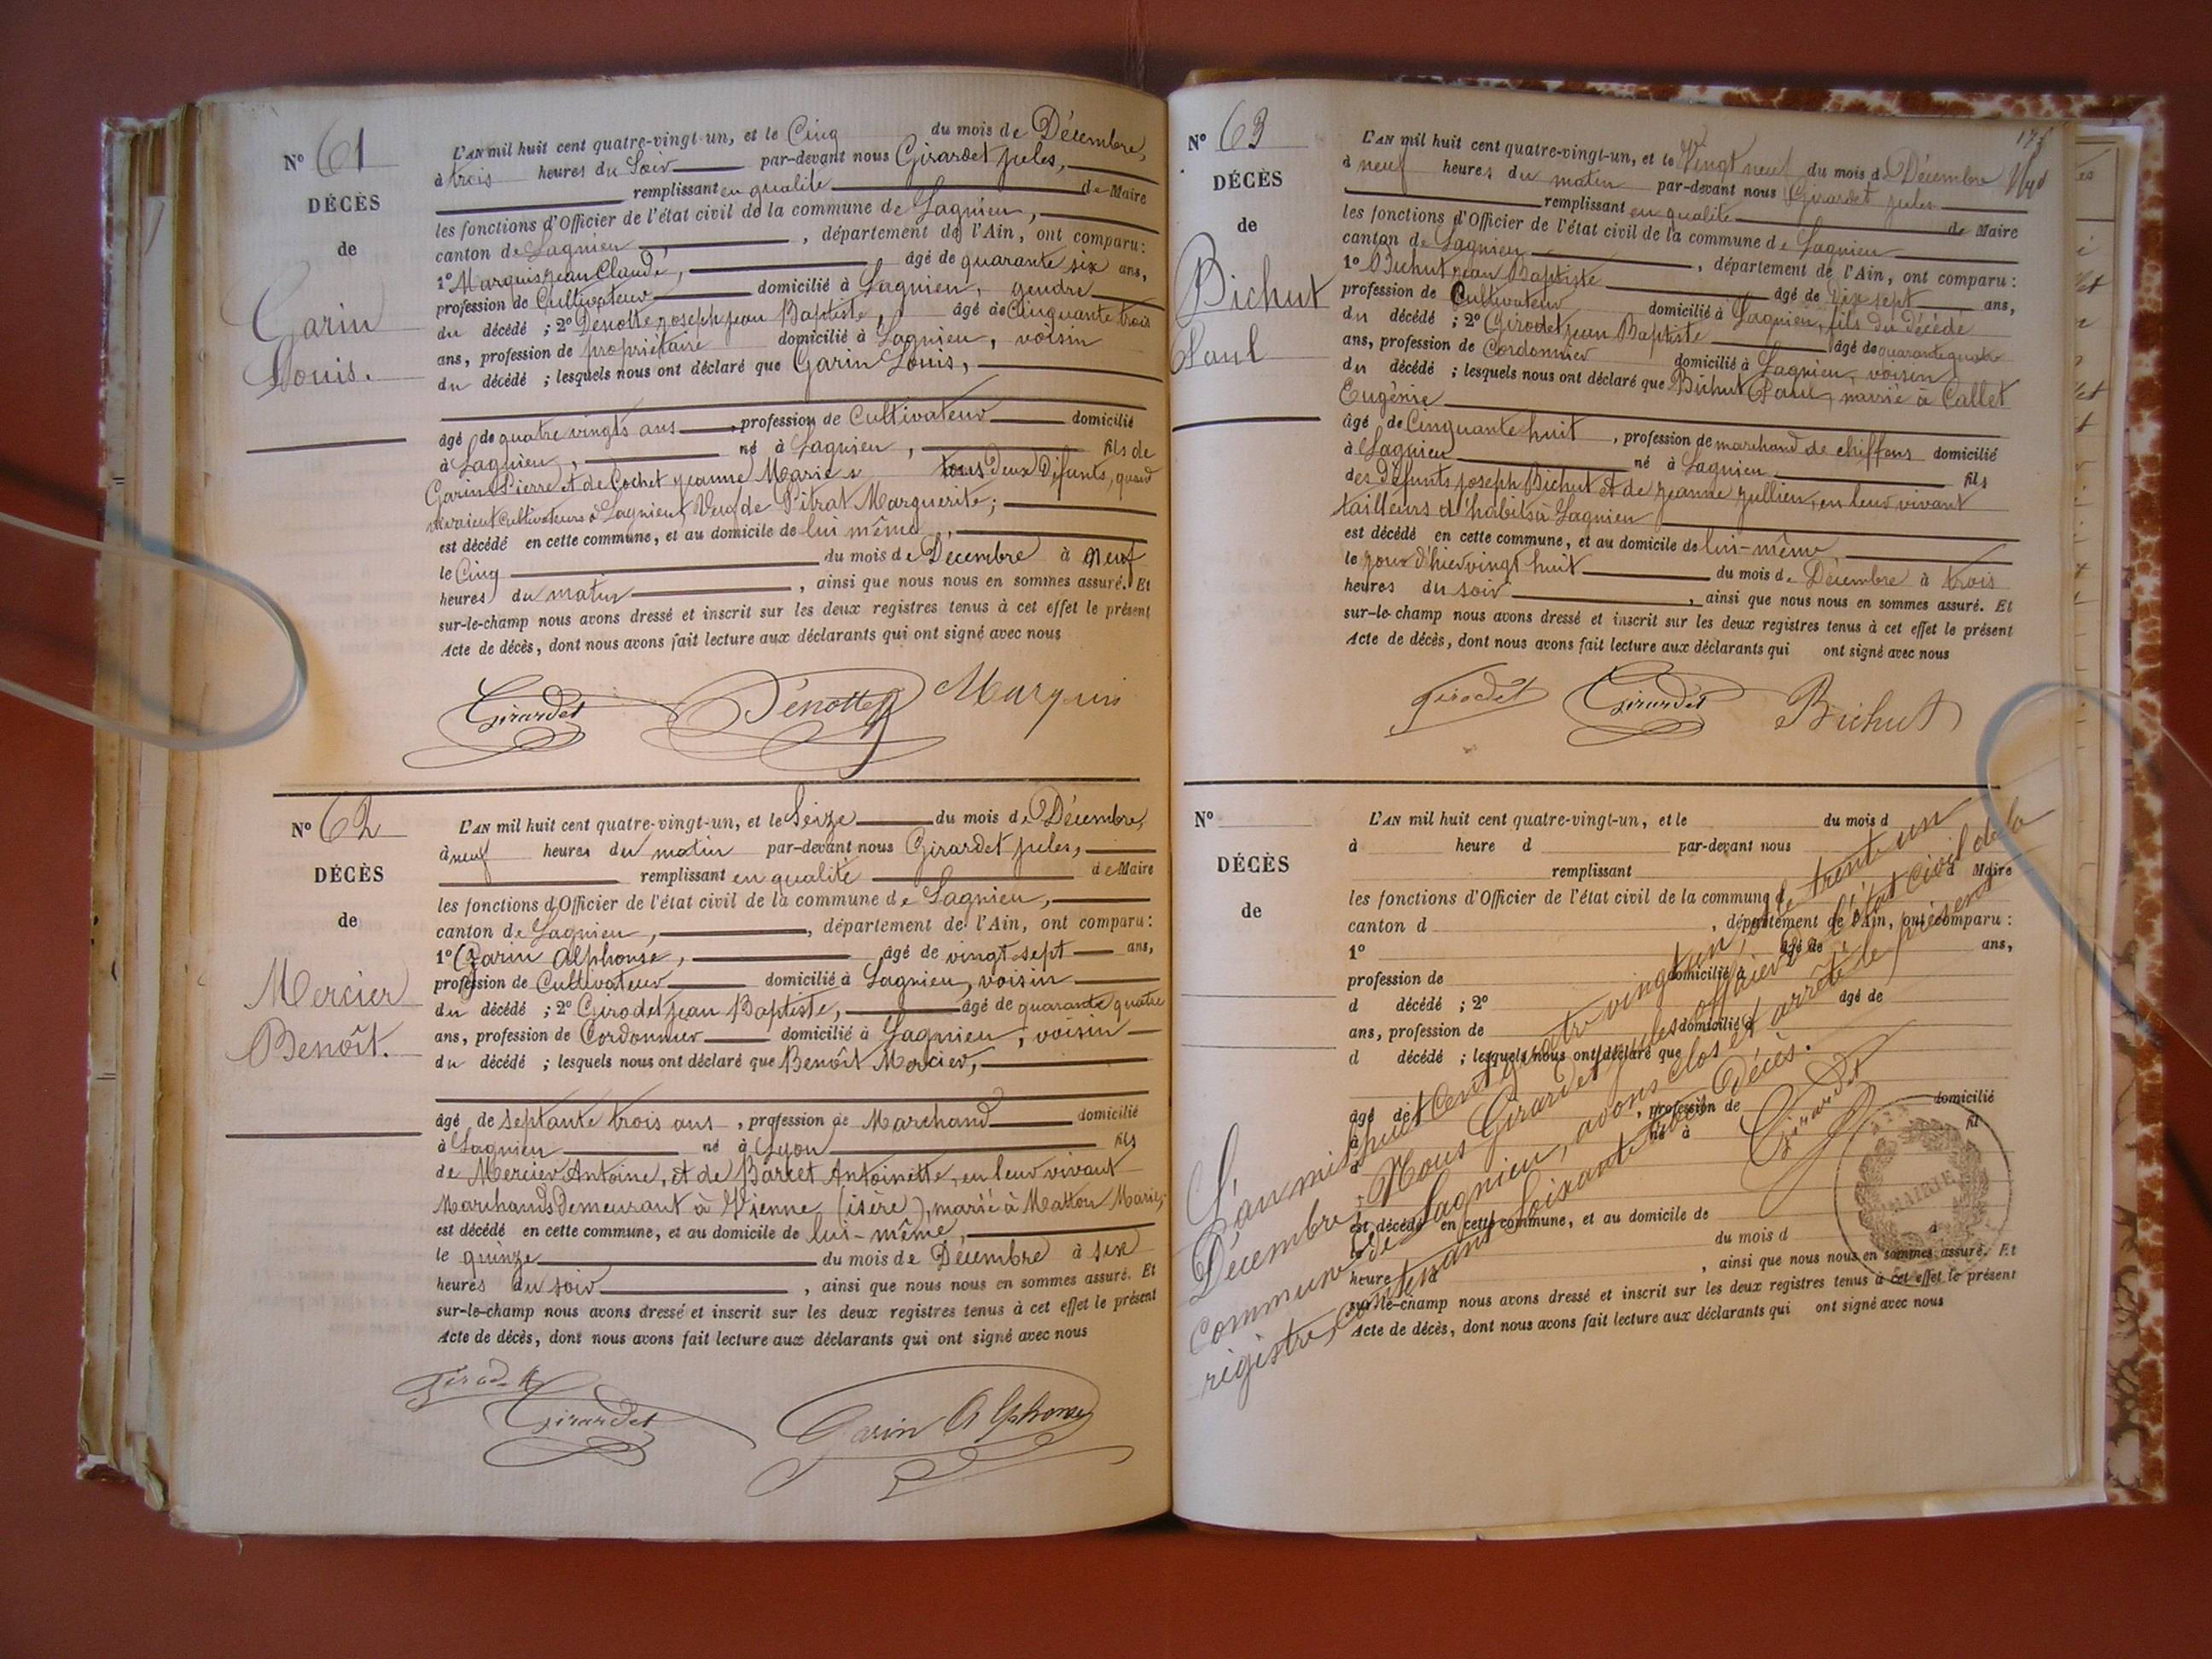 N° 61
DÉCÈS
de
Garin
Louis.
L'AN mil huit cent quatre-vingt-un, et le Cinq du mois de Décembre,
à trois heures du Soir par-devant nous Girardet Jules,
remplissant en qualité de Maire
les fonctions d'Officier de l'état civil de la commune de Lagnieu,
canton de Lagnieu, département de l'Ain, ont comparu:
1° Marquis Jean Claude, âgé de quarante six ans,
profession de Cultivateur domicilié à Lagnieu, gendre
du décédé ; 2° Dénotte Joseph Jean Baptiste, âgé de Cinquante trois
ans, profession de propriétaire domicilié à Lagnieu, voisin
du décédé ; lesquels nous ont déclaré que Garin Louis,
âgé de quatre vingts ans, profession de Cultivateur domicilié
à Lagnieu, né à Lagnieu, fils de
Garin Pierre et de Cochet Jeanne Marie tous deux Défunts, quand
vivaient Cultivateurs à Lagnieu, Veuf de Pitrat Marguerite;
est décédé en cette commune, et au domicile de lui même,
le Cinq du mois de Décembre à Neuf
heures du matin, ainsi que nous nous en sommes assuré. Et
sur-le-champ nous avons dressé et inscrit sur les deux registres tenus à cet effet le présent
Acte de décès, dont nous avons fait lecture aux déclarants qui ont signé avec nous
Girardet Dénotte Marquis
N° 62
DÉCÈS
de
Mercier
Benôit.
L'AN mil huit cent quatre-vingt-un, et le Seize du mois de Décembre,
à neuf heures du matin par-devant nous Girardet Jules,
remplissant en qualité de Maire
les fonctions d'Officier de l'état civil de la commune de Lagnieu,
canton de Lagnieu, département de l'Ain, ont comparu:
1° Garin Alphonse, âgé de vingt-sept ans,
profession de Cultivateur domicilié à Lagnieu, voisin
du décédé ; 2° Girodet Jean Baptiste, âgé de quarante quatre
ans, profession de Cordonnier domicilié à Lagnieu, voisin
du décédé ; lesquels nous ont déclaré que Benôit Mercier,
âgé de septante trois ans, profession de Marchand domicilié
à Lagnieu né à Lyon fils
de Mercier Antoine, et de Barcet Antoinette, en leur vivant
Marchands demeurant à Vienne (isère), marié à Matton Marie,
est décédé en cette commune, et au domicile de lui-même,
le quinze du mois de Décembre à six
heures du soir, ainsi que nous nous en sommes assuré. Et
sur-le-champ nous avons dressé et inscrit sur les deux registres tenus à cet effet le présent
Acte de décès, dont nous avons fait lecture aux déclarants qui ont signé avec nous
Girodet
Girardet Garin Alphonse
N° 63
DÉCÈS
de
Bichut
Paul
L'AN mil huit cent quatre-vingt-un, et le Vingt neuf du mois de Décembre
à neuf heures du matin par-devant nous Girardet Jules
remplissant en qualité de Maire
les fonctions d'Officier de l'état civil de la commune de Lagnieu
canton de Lagnieu, département de l'Ain, ont comparu:
1° Bichut Jean Baptiste âgé de Dix sept ans,
profession de Cultivateur domicilié à Lagnieu, fils du décédé
du décédé ; 2° Girodet Jean Baptiste âgé de quarante quatre
ans, profession de Cordonnier domicilié à Lagnieu, voisin
du décédé ; lesquels nous ont déclaré que Bichut Paul, marié à Callet
Eugénie
âgé de Cinquante huit, profession de marchand de chiffons domicilié
à Lagnieu né à Lagnieu fils
des Défunts Joseph Bichut et de Jeanne Jullien, en leur vivant
tailleurs d'habits à Lagnieu
est décédé en cette commune, et au domicile de lui-même,
le jour d'hier vingt huit du mois de Décembre à trois
heures du soir, ainsi que nous nous en sommes assuré. Et
sur-le-champ nous avons dressé et inscrit sur les deux registres tenus à cet effet le présent
Acte de décès, dont nous avons fait lecture aux déclarants qui ont signé avec nous
Girodet Girardet Bichut
N°
DÉCÈS
de
L'AN mil huit cent quatre-vingt-un, et le du mois d
à heure d par-devant nous
remplissant Maire
les fonctions d'Officier de l'état civil de la commune d
canton d , département de l'Ain, ont comparu:
1° âgé de ans,
profession de domicilié à
d décédé ; 2° âgé de
ans, profession de domicilié à
d décédé ; lesquels nous ont déclaré que
âgé de , profession de domicilié
à né à fil
d
est décédé en cette commune, et au domicile de
le du mois d à
heure , ainsi que nous nous en sommes assuré. Et
sur-le-champ nous avons dressé et inscrit sur les deux registres tenus à cet effet le présent
Acte de décès, dont nous avons fait lecture aux déclarants qui ont signé avec nous
L'an mil huit cent quatre vingt un, et le trente un
Décembre, Nous Girardet Jules officier de l'état civil de la
commune de Lagnieu, avons clos et arrêté le présent
régistre, contenant Soixante trois Décès.
Girardet
MAIRIE